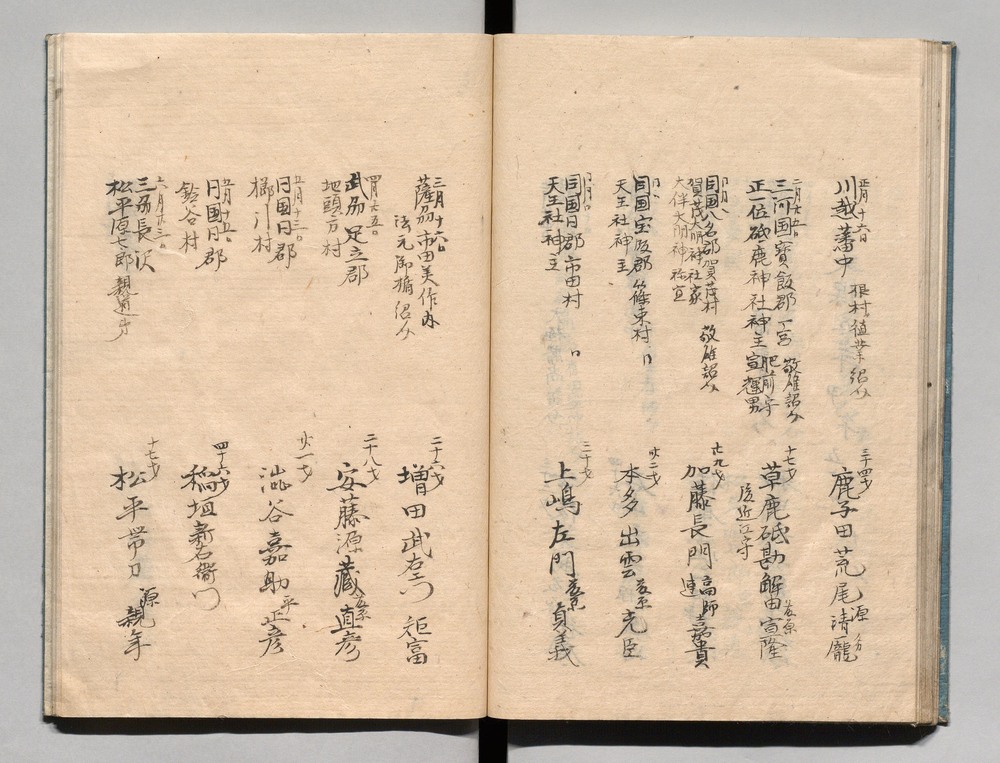 正月十六日
川越藩中
根村値業紹介
三十四才
鹿子田荒尾 源 清龐
二月七五日
三河国寶飯郡一ノ宮
正一位砥鹿神社神主
肥前守
宣輝男
敬雄紹介
十七才
草鹿砥勘解由 藤原 宣隆
後近江守
同月日
同国八名郡賀茂村
賀茂大明神社家
大伴大明神祢宣
敬雄紹介
廿九才
加藤長門 高師連 嘉貴
同国宝飯郡篠束村
天王社神主
廿二才
本多出雲 藤原 光臣
同月日
同国同郡市田村
天王社神主
三十才
上嶋左門 藤原 貞義
三月十六日
薩州市田美作内
法元御橘紹介
二十六才
増田武右門 矩富
四月七五日
武州足立郡
地頭方村
二十八才
安藤源蔵 藤原 直彦
五月十三日
同国同郡
櫛引村
廿一才
澁谷嘉助 平 正彦
五月十五日
同国同郡
鈴谷村
四十六才
稲垣新右衛門
六月廿三日
三州長沢
松平源七郎親道弟
十七才
松平帯刀 源 親年